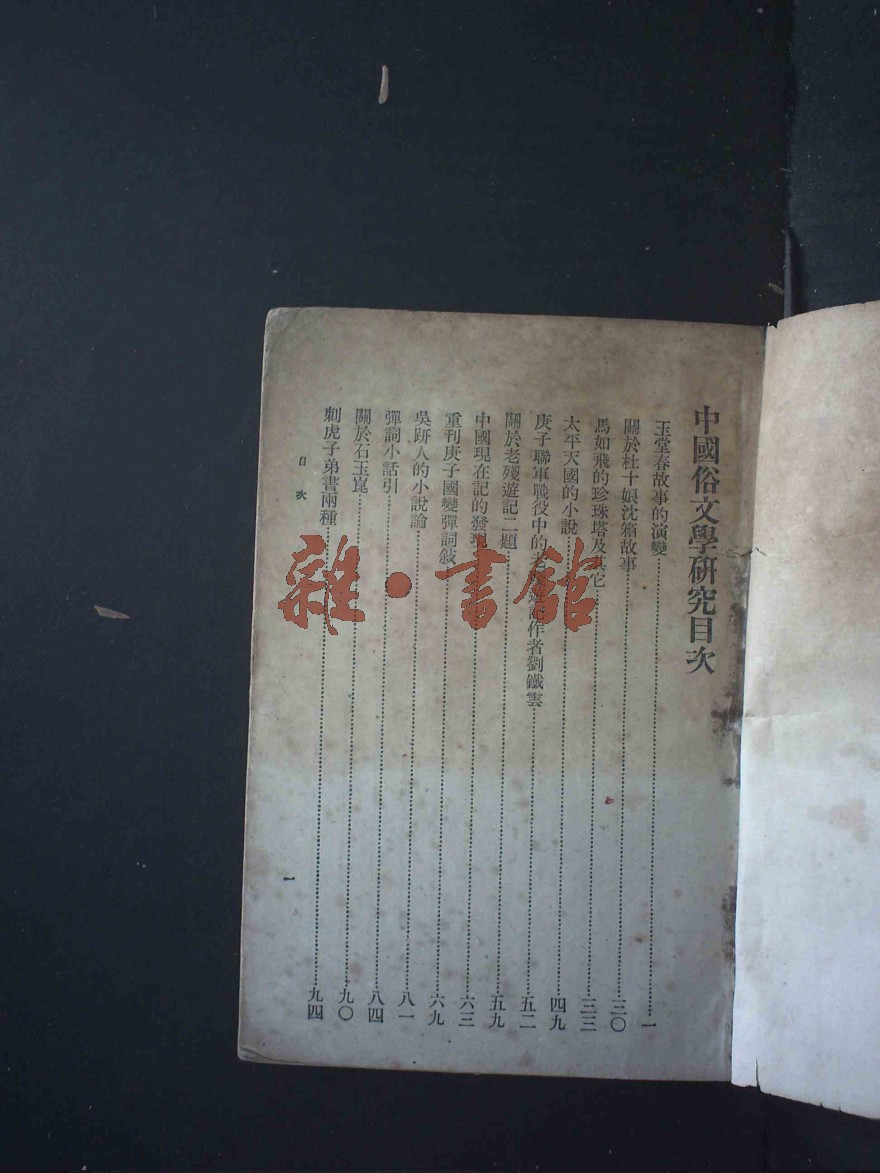 中國俗文學研究目次
玉堂春故事的演變 一
關於杜十娘沈箱故事 三〇
馬如飛的珍珠塔及其它 三三
太平天國的小說 四九
庚子聯軍戰役中的老殘遊記作者劉鐵雲 五二
關於老殘遊記二題 五九
中國現在記的發現 六三
重刊庚子國變彈詞敍 六九
吳趼人的小說論 八一
彈詞小話引 八四
關於石玉崑 九〇
刺虎子弟書兩種 九四
目次
一
雜·書館